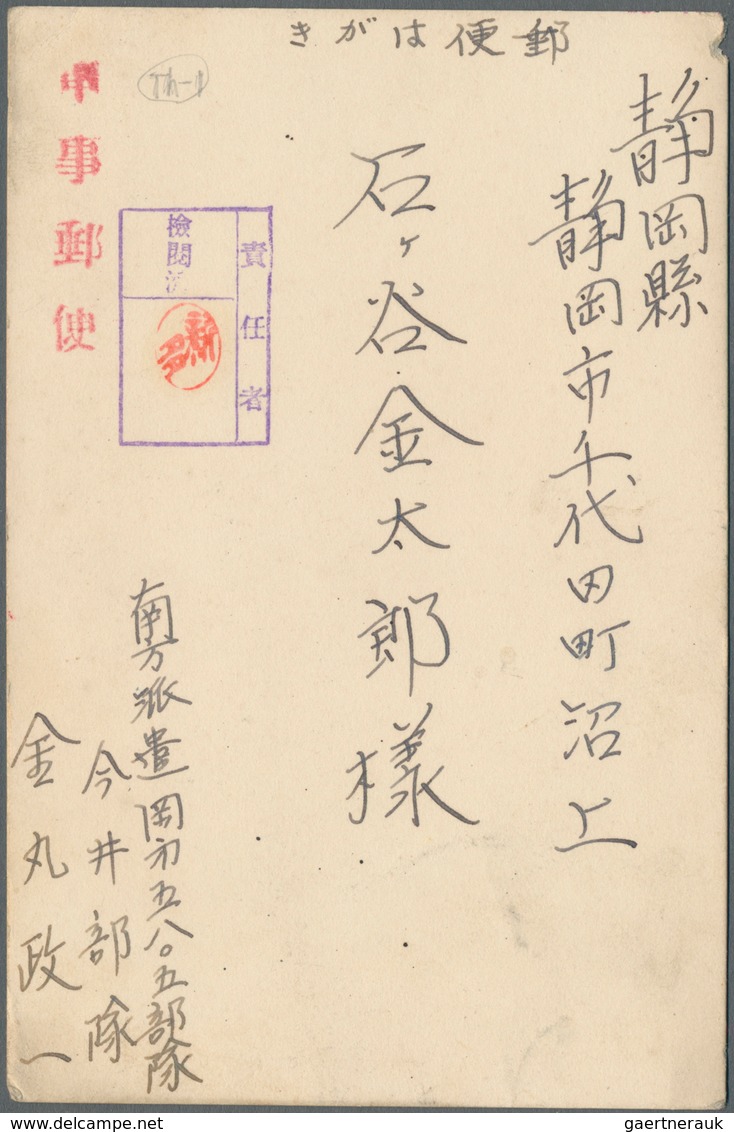 郵便はがき
静岡縣
静岡市千代田町沼上
石ヶ谷金太郎様
責任者
検閲済
軍事郵便
南方派遣岡第五八〇五部隊
今井部隊
金丸政一
gaertnerauk